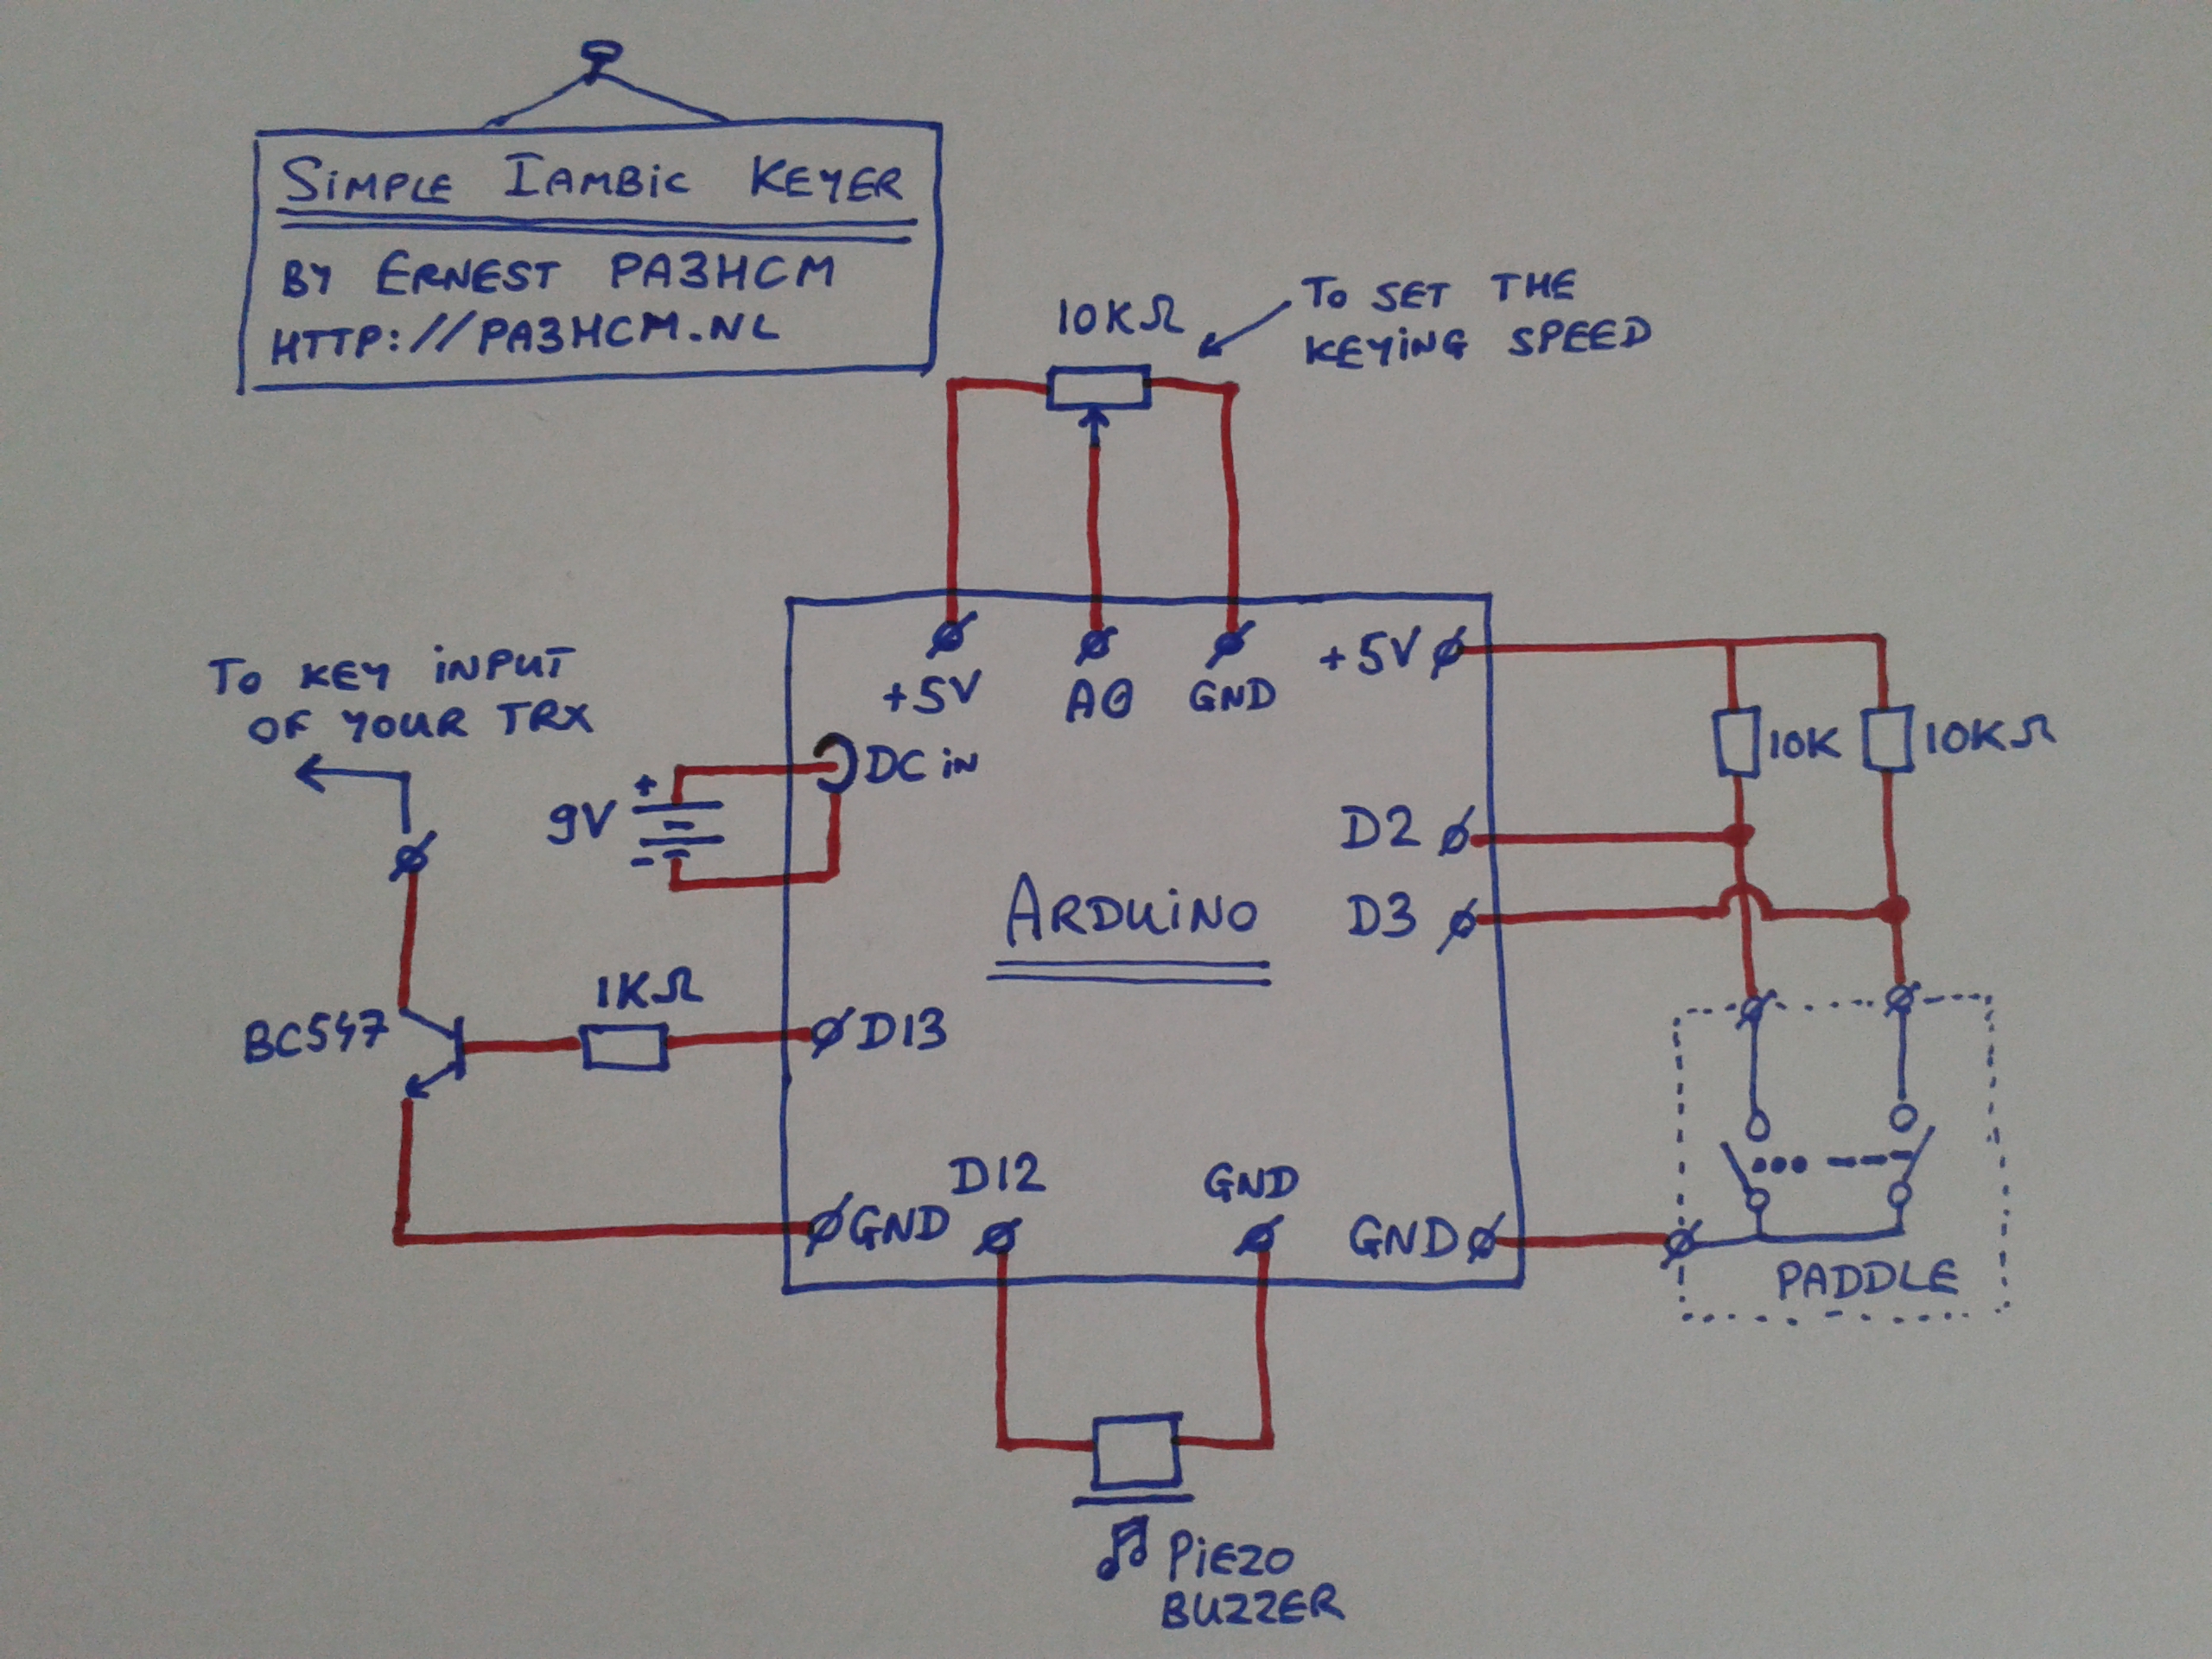 SIMPLE IAMBIC KEYER
BY ERNEST PA3HCM
HTTP://PA3HCM.NL
10KΩ
TO SET THE
KEYING SPEED
TO KEY INPUT
OF YOUR TRX
+5V
A0
GND
+5V
10K
10KΩ
DC IN
+
9V
-
D2
D3
ARDUINO
1KΩ
BC547
D13
D12
GND
GND
GND
PADDLE
PIEZO
BUZZER